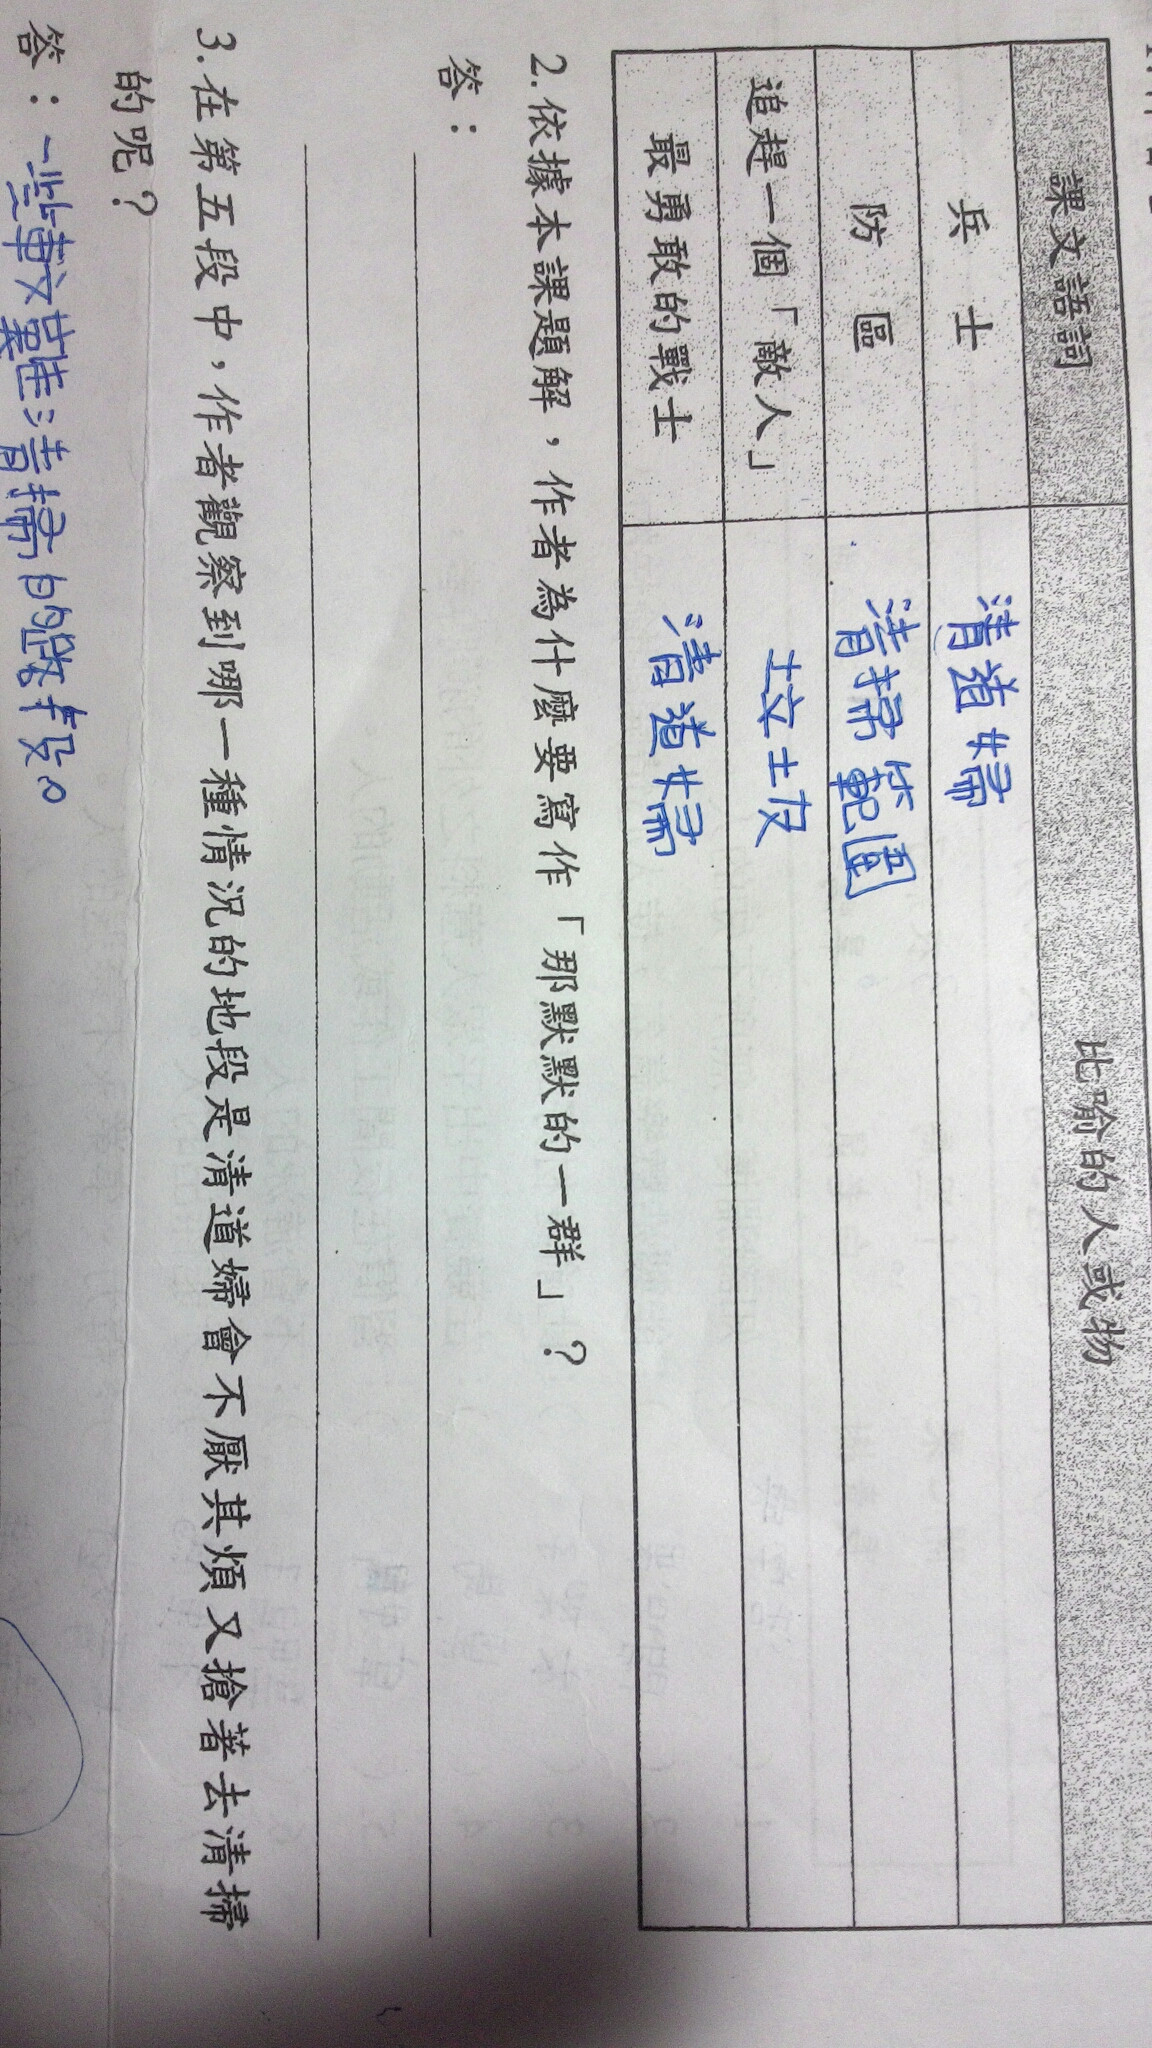 課文語詞 比喻的人或物
兵士 清道婦
防區 清掃範圍
追趕一個「敵人」 垃圾
最勇敢的戰士 清道婦
2.依據本課題解，作者為什麼要寫作「那默默的一群」？
答：
3.在第五段中，作者觀察到哪一種情況的地段是清道婦會不厭其煩又搶著去清掃
的呢？
答：一些較難清掃的路段。